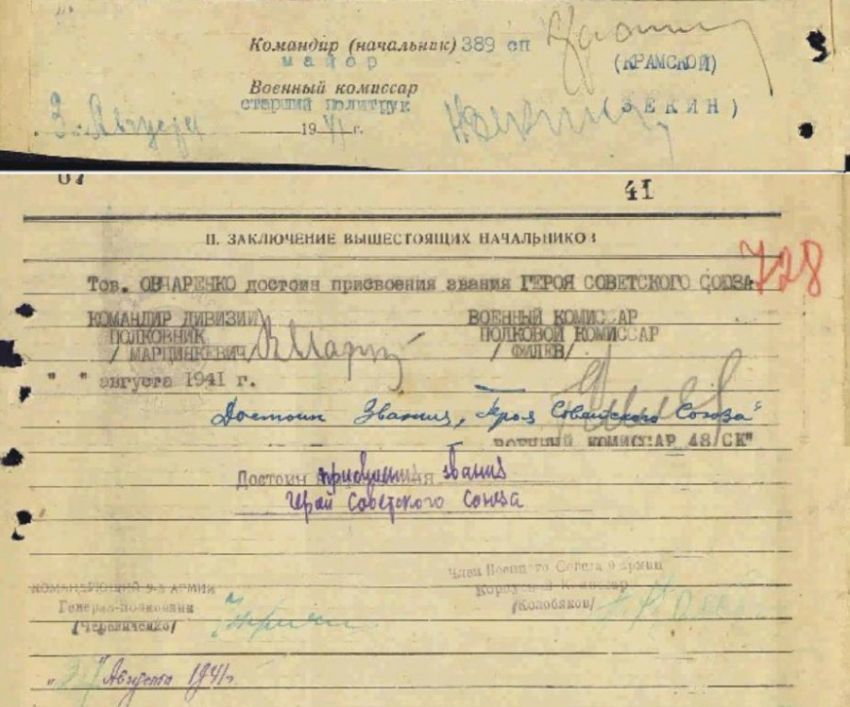 Командир (начальник) 389 сп
майор
(КРАМСКОЙ)
Военный комиссар
старший политрук
(ЗЕКИН)
3 Августа 1941 г.
41
II. ЗАКЛЮЧЕНИЕ ВЫШЕСТОЯЩИХ НАЧАЛЬНИКОВ
728
Тов. ОВЧАРЕНКО достоин присвоения звания ГЕРОЯ СОВЕТСКОГО СОЮЗА
КОМАНДИР ДИВИЗИИ ВОЕННЫЙ КОМИССАР
ПОЛКОВНИК ПОЛКОВОЙ КОМИССАР
/ МАРЦИНКЕВИЧ / ФИЛЕВ/
" " августа 1941 г.
Достоин Звания „Героя Советского Союза"
ВОЕННЫЙ КОМИССАР 48/СК"
Достоин присвоения звания
Герой Советского Союза
КОМАНДУЮЩИЙ 9-й АРМИИ
Генерал-полковник
/Черевиченко/
Член Военного Совета 9 армии
Корпусной Комиссар
/Колобяков/
Августа 1941г.